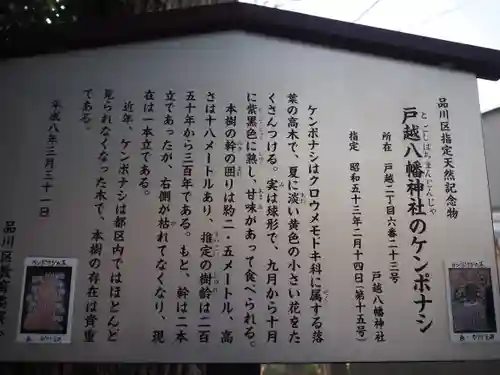 品川区指定天然記念物
とごしはちまんじんじゃ
戸越八幡神社のケンポナシ
所在 戸越二丁目六番二十三号
戸越八幡神社
指定 昭和五十三年二月十四日(第十五号)
ケンポナシはクロウメモドキ科に属する落
葉の高木で、夏に淡い黄色の小さい花をた
くさんつける。実は球形で、九月から十月
に紫黒色に熟し、甘味があって食べられる。
本樹の幹の囲りは約二・五メートル、高
さは十八メートルあり、推定の樹齢は二百
五十年から三百年である。もと、幹は二本
立であったが、右側が枯れてなくなり、現
在は一本立である。
近年、ケンポナシは都区内ではほとんど
見られなくなった木で、本樹の存在は貴重
である。
平成八年三月三十一日
品川区教育委員